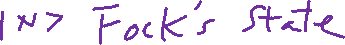 |N> Fock's state